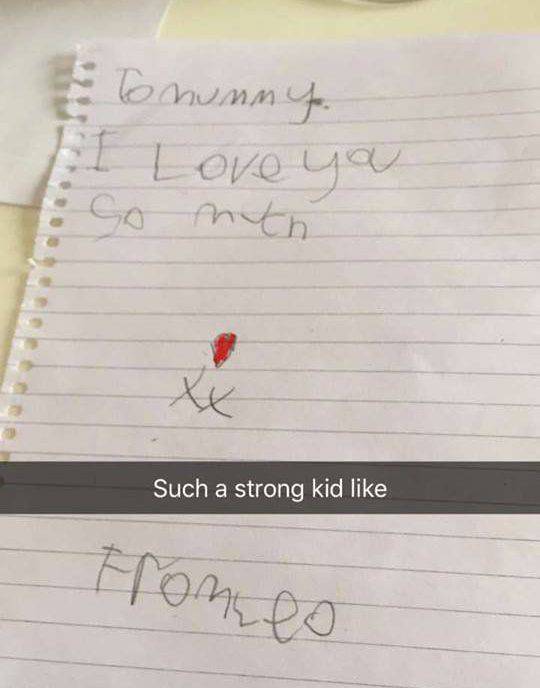 To mummy.
I Love you
So mth
xx
Such a strong kid like
From Leo